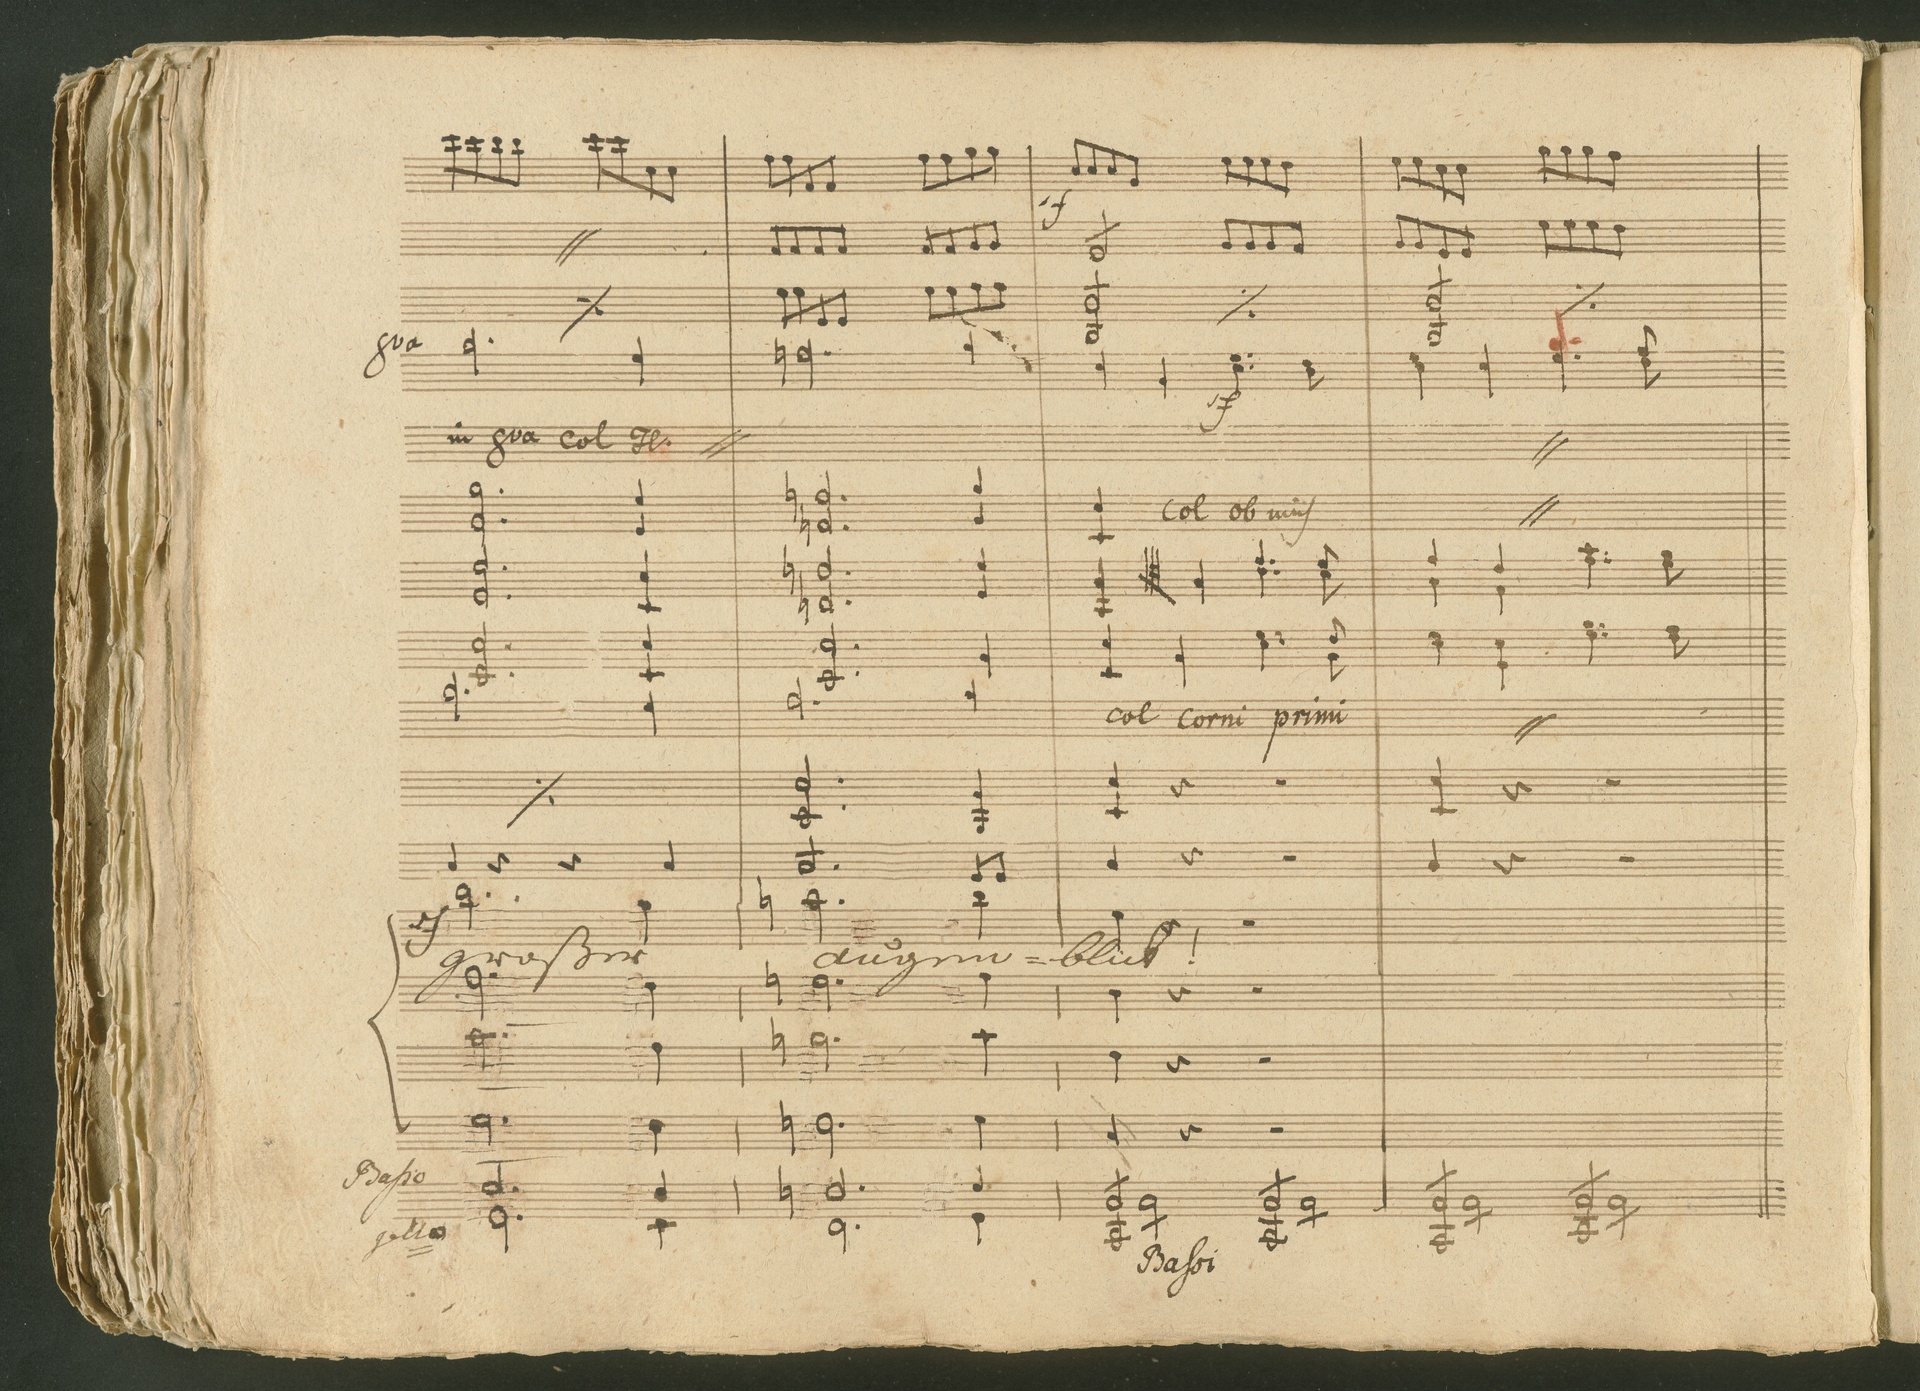 sf
8va
sf
in 8va col Fl.
col ob
col Corni primi
sf
großer augen=blick!
Basso
Bassi